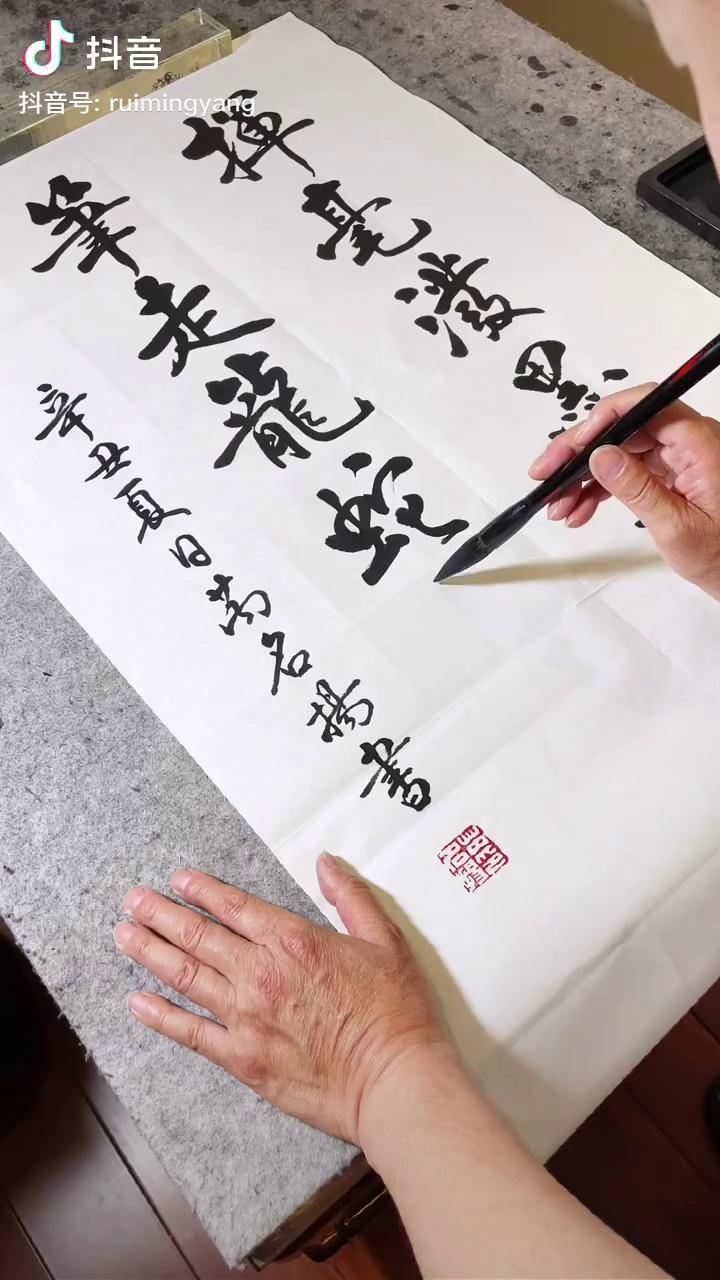 抖音
抖音号: ruimingyang
揮毫潑墨
筆走龍蛇
辛丑夏日萬名揚書